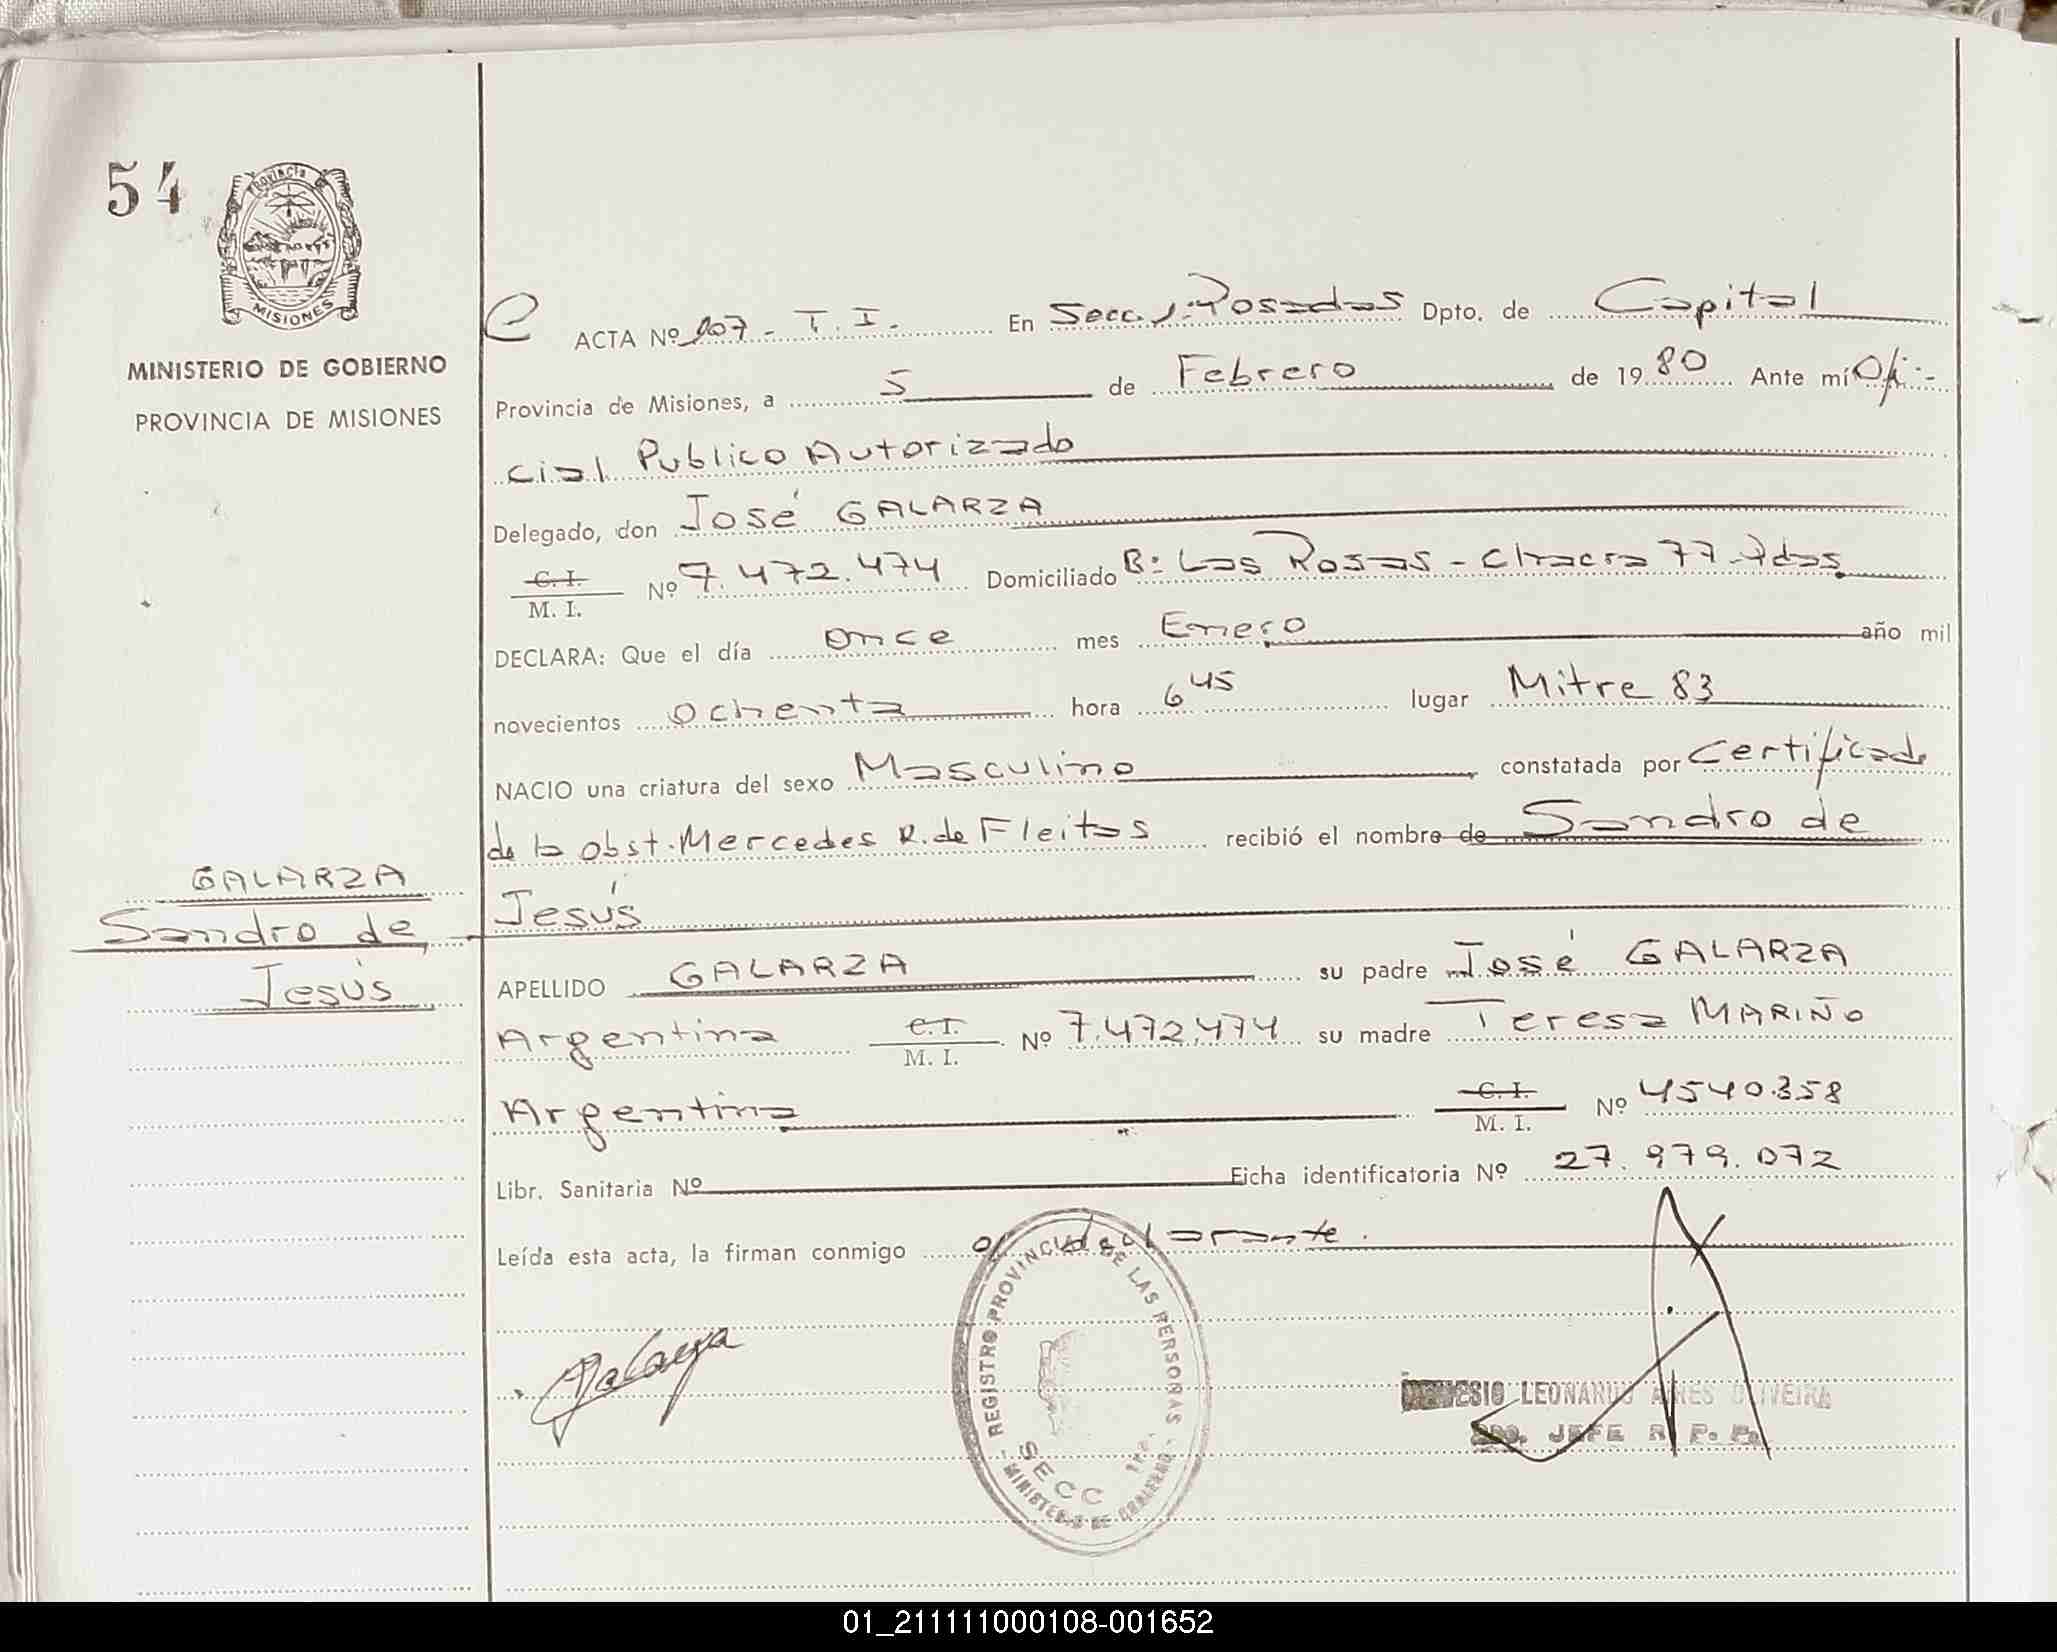 54
Provincia de
MISIONES
MINISTERIO DE GOBIERNO
PROVINCIA DE MISIONES
GALARZA
Sandro de
Jesús
C ACTA Nº 207 - T. I. - En Secc. 1: Posadas Dpto. de Capital
Provincia de Misiones, a 5 de Febrero de 1980 Ante mí Ofi-
cial Publico Autorizado
Delegado, don José GALARZA
C. I.
M. I. Nº 7.472.474 Domiciliado Bº Las Rosas - Chacra 77 - Pdas.
DECLARA: Que el día once mes Enero año mil
novecientos ochenta hora 6 45 lugar Mitre 83
NACIO una criatura del sexo Masculino constatada por Certificado
de la obst. Mercedes R. de Fleitas recibió el nombre de Sandro de
Jesús
APELLIDO GALARZA su padre José GALARZA
Argentina C. I. M. I. Nº 7.472.474 su madre Teresa MARIÑO
Argentina C. I. M. I. Nº 4540.358
Libr. Sanitaria Nº Ficha identificatoria Nº 27.979.072
Leída esta acta, la firman conmigo el declarante.
Galarza
REGISTRO PROVINCIAL DE LAS PERSONAS - MINISTERIO DE GOBIERNO -
SECC 1ra.
LEONARDO AIRES OLIVEIRA
JEFE R. P. P.
01_211111000108-001652